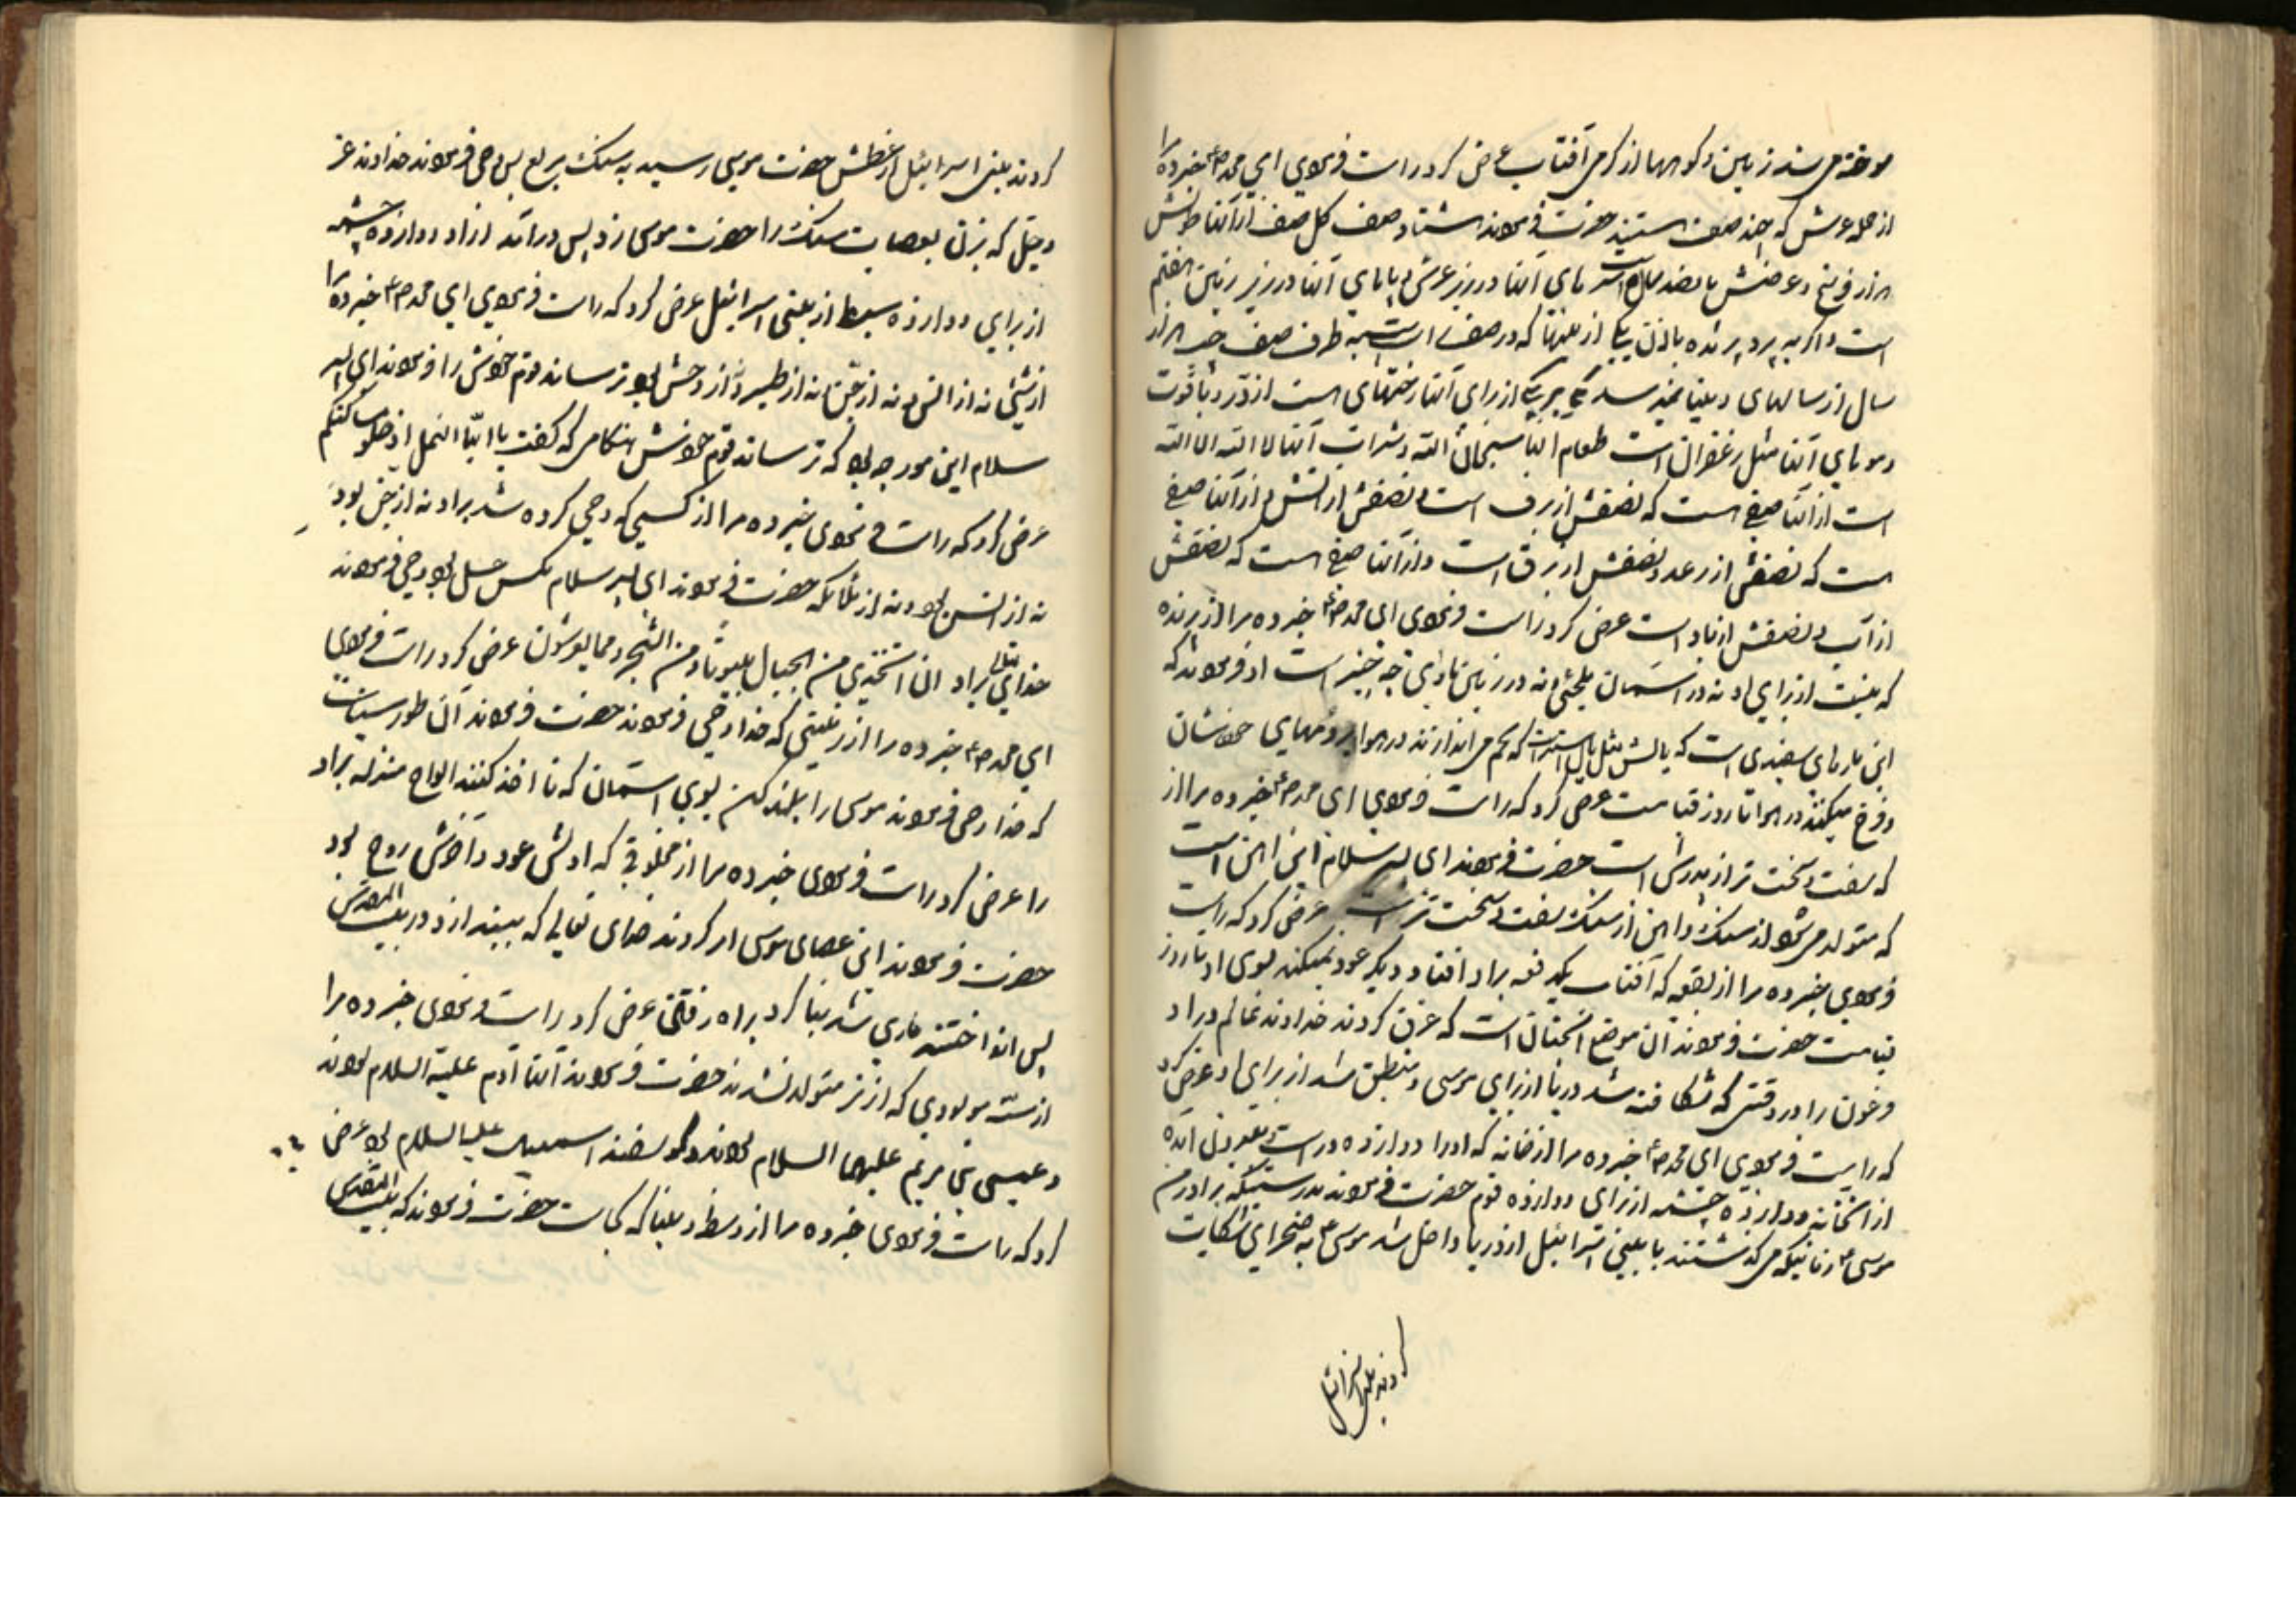 سوخته می شد زمین و کوهها از گرمی آفتاب عرض کرد راست فرمودی ای محمد ص ع خبر ده مرا
از حمله عرش که چند صف هستند حضرت فرمودند هشتاد صف کل صف از آنها طولش
هزار فرسخ و عرضش پانصد سال است سرهای آنها در زیر عرش و پاهای آنها در زیر زمین هفتم
است و اگر بپرد پرنده باذن یکی از که در صف است بطرف صف چپ هزار
سال از سالهای دنیا نمیرسد از برای آنها است از در و یاقوت
و موهای آنها مثل زعفران است طعام آنها سبحان الله و شراب آنها لا اله الا الله
است از آنها صفی هست که نصفش از برف است و نصفش از آتش و از آنها صفی
هست که نصفش از رعد و نصفش از برق است و از آنها صفی هست که نصفش
از آب و نصفش از باد است عرض کرد راست فرمودی ای محمد ص ع خبر ده مرا از پرنده
که نیست از برای او نه در آسمان ملجئی و نه در زمین ماوای چه چیز است او فرمودند که
این مارهای سفیدی است که یالش مثل یال اسب است که تخم می اندازند در هوا بر دمهای خودشان
و فرخ میکنند در هوا تا روز قیامت عرض کرد که راست فرمودی ای محمد ص ع خبر ده مرا از
که سفت و سخت تر از پدرش است حضرت فرمودند ای پسر سلام این آهن است
که متولد می شود از سنگ و آهن از سنگ سفت و سخت تر است عرض کرد که راست
فرمودی خبر ده مرا از بقعه که آفتاب یکدفعه بر او افتاد و دیگر عود نمیکند بسوی او تا روز
قیامت حضرت فرمودند آن موضع است که غرق کردند خداوند عالم در او
فرعون را در وقتی که شکافته شد دریا از برای موسی و منطبق شد از برای او عرض کرد
که راست فرمودی ای محمد ص ع خبر ده مرا از خانه که او را دوازده در است و بیرون آمده
از آنخانه دوازده چشمه از برای دوازده قوم حضرت فرمودند بدرستیکه برادرم
موسی ع زمانیکه می گذشتند با بنی اسرائیل از دریا داخل شد موسی ع به صحرای شکایت
کردند بنی اسرائیل
کردند بنی اسرائیل از عطش حضرت موسی رسید به سنگ مربع پس وحی فرمودند خداوند عز
و جل که بزن بعصایت سنگ را حضرت موسی زد پس در آمد از او دوازده چشمه
از برای دوازده سبط از بنی اسرائیل عرض کرد که راست فرمودی ای محمد ص ع خبر ده مرا
از شیئی نه از انس و نه از جن نه از طیر و نه از وحش بود ترساند قوم خودش را فرمودند ای پسر
سلام این مورچه بود که ترساند قوم خودش هنگامی که گفت یا ایها النمل ادخلوا مساکنکم
عرض کرد که راست فرمودی خبر ده مرا از کسی که وحی کرده شد بر او نه از جن بود
نه از انس بود و نه از ملائکه حضرت فرمودند ای پسر سلام مگس عسل بود وحی فرمودند
خدایتعالی بر او ان اتخذی من الجبال بیوتا و من الشجر و مما یعرشون عرض کرد راست فرمودی
ای محمد ص ع خبر ده مرا از زمینی که خدا وحی فرمودند حضرت فرمودند آن طور سیناست
که خدا وحی فرمودند موسی را بلند کن بسوی آسمان که تا اخذ کنند الواح منزله بر او
را عرض کرد راست فرمودی خبر ده مرا از مخلوقی که اولش عود و آخرش روح بود
حضرت فرمودند این عصای موسی امر کردند خدای تعالی که بیندازد در بیت المقدس
پس انداختند ماری شد بنا کرد براه رفتن عرض کرد راست فرمودی خبر ده مرا
از سه مولودی که از نر متولد نشدند حضرت فرمودند آنها آدم علیه السلام بودند
و عیسی بن مریم علیهما السلام بودند و گوسفند اسمعیل علیه السلام بود عرض
کرد که راست فرمودی خبر ده مرا از وسط دنیا که کجاست حضرت فرمودند که بیت المقدس